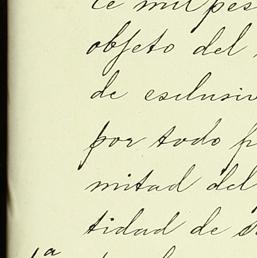 ce mil pes
objeto del
de esclusiv
por todo p
mitad del
tidad de s
1ª